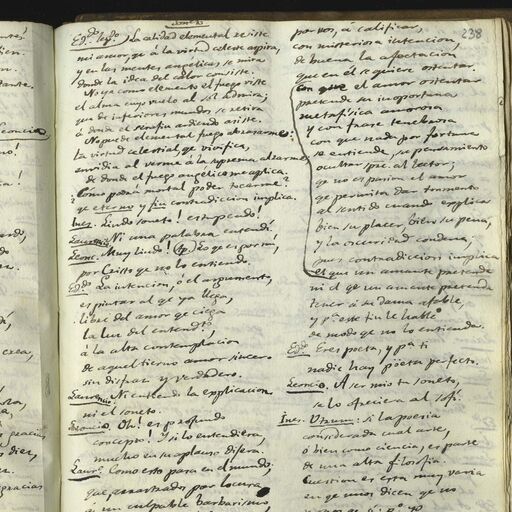 238
Egdo. leyo. La calidad elemental resiste
mi amor, qe á la virtud celeste aspira,
y en las mentes angelicas se mira
donde la idea del calor consiste.
No ya como elemento el fuego viste
el alma cuyo vuelo al sol admira,
que de inferiores mundos se retira
á donde el serafin ardiendo asiste.
No puede elemental fuego abrasarme:
La virtud celestial, qe vivifica,
envidia al verme á la suprema alzarme;
de donde el fuego angelico me aplica
¿Como podrá mortal poder tocarme?
qe eterno y fin contradiccion implica.
Ines. Lindo soneto! estupendo!
Laurencio. Ni una palabra entendí.
Leonc. Muy lindo! (Ap.) Lo qe es por mi,
por Cristo qe no lo entiendo.
Egdo. La intencion, ó el argumento,
es pintar al qe ya llega,
libre del amor qe ciega
la luz del entendto.
á la alta contemplacion
de aquel tierno amor sincero
sin disfraz y verdadero.
Laurencio. Ni entiendo la explicacion
ni el soneto.
Leoncio. Oh! es profundo
concepto! Y si lo entendiera,
mucho en su aplauso dijera.
Laurc. Como esto pasa en el mundo:
que arrastrados por locura
de un culpable barbarismo,
por vos, á calificar,
con misteriosa intencion,
de buena la afectacion
que en él se quiere ostentar.
Con que el amor ostentar
pretende su inoportuna
metafísica amorosa
y con frase tenebrosa
con que nada por fortuna
se entiende, su pensamiento
ocultar pre. al lector;
qe no es pasion el amor
qe permita dar tormento
al sentido cuando explica
bien su placer, bien su pena,
y la oscuridad condena,
pues contradiccion implica
el que un amante pretenda
ni el qe un amante pretenda
tener á su dama afable,
y pa este fin le hable
de modo qe no lo entienda.
Egdo. Eres poeta, y pa ti
nadie hay poeta perfecto.
Leoncio. A ser mio tu soneto,
se lo ofreciera al sofí.
Ines. Utrum: si la poesia
considerada cual arte,
ó bien como ciencia, es parte
de una alta filosofia.
Cuestion es esta muy varia
en qe unos dicen qe no